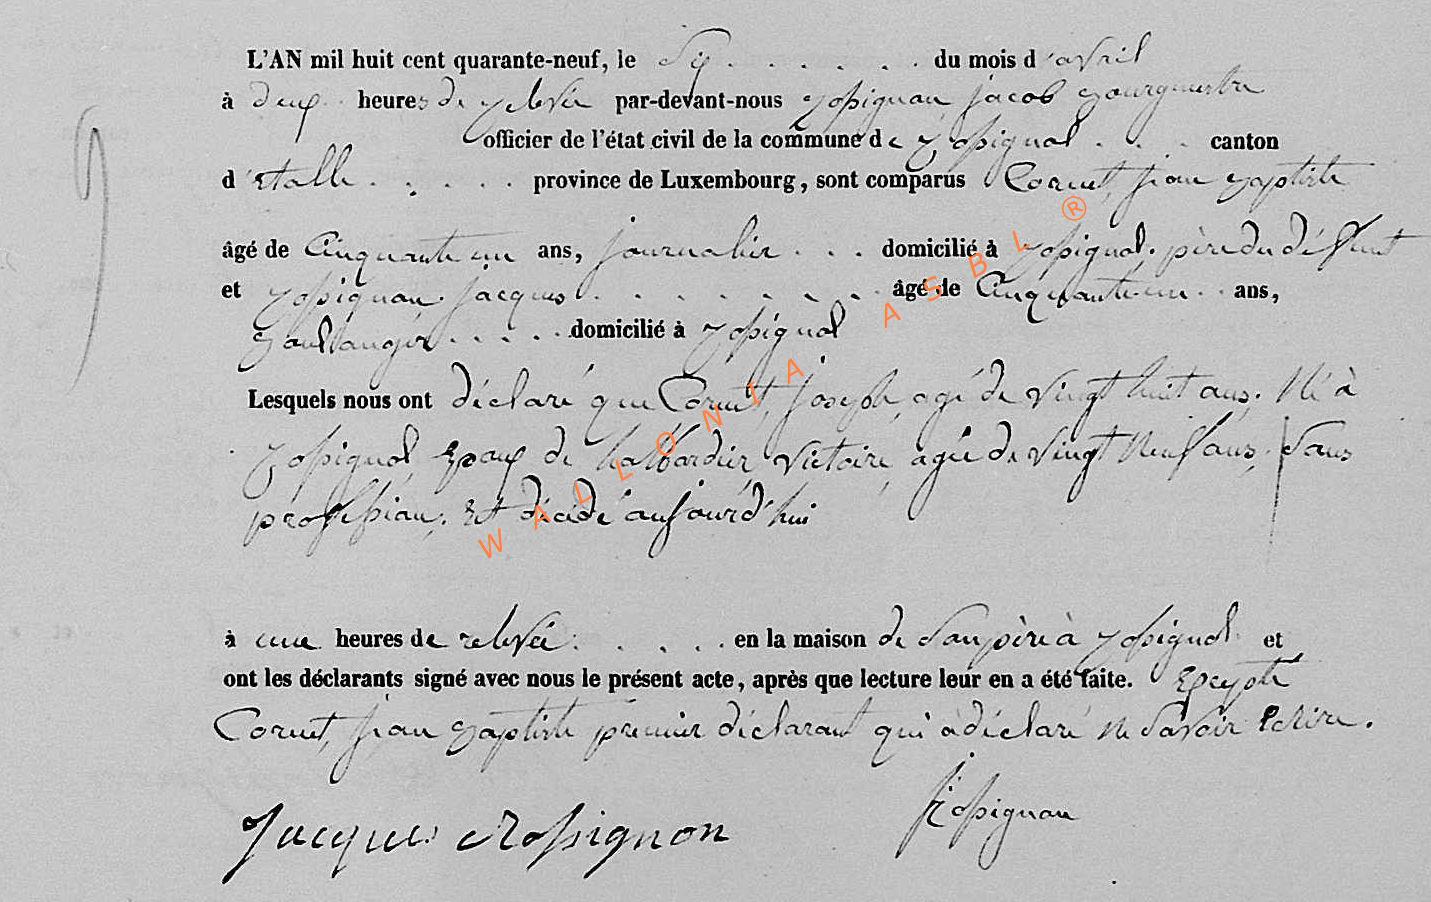 L'AN mil huit cent quarante-neuf, le Six . . . . . . du mois d'avril
à deux heures de relevée par-devant-nous Rossignon jacob Bourgmestre
officier de l'état civil de la commune de Rossignol . . . canton
d'Etalle . . . . . province de Luxembourg, sont comparus Cornet, jean Baptiste
âgé de Cinquante un ans, journalier . . . domicilié à Rossignol. père du défunt
et Rossignon jacques . . . . . . . . âgé de Cinquante un . . ans,
Boullanger . . . . . domicilié à Rossignol
Lesquels nous ont déclaré que Cornet, joseph, agé de vingt huit ans, Né à
Rossignol, Epoux de Lallardier, Victoire, agée de vingt Neuf ans, Sans
profession, Et décédé aujourd'hui
à une heures de relevée . . . . . en la maison de Son père à Rossignol et
ont les déclarants signé avec nous le présent acte, après que lecture leur en a été faite. Excepté
Cornet, jean Baptiste premier déclarant qui à déclaré Ne Savoir Ecrire.
Jacques Rossignon
Rossignon
9
WALLONIA ASBL ®